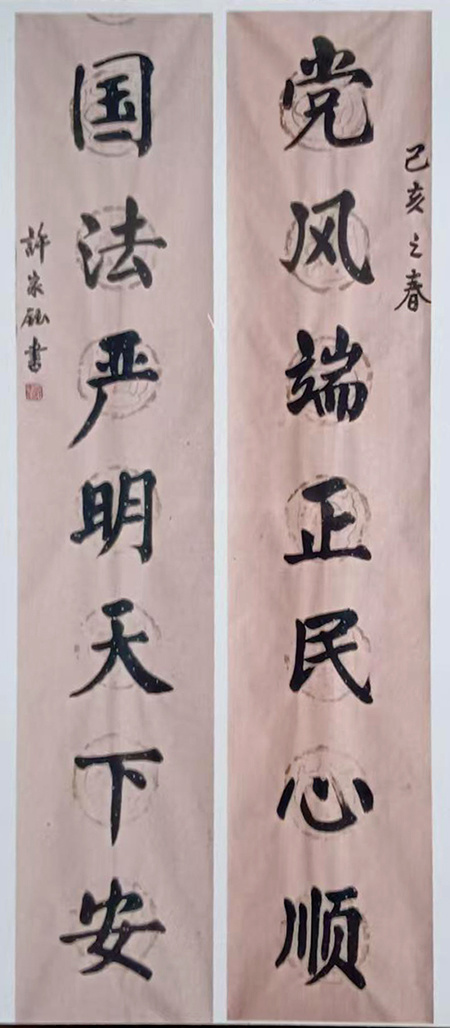 己亥之春
党风端正民心顺
国法严明天下安
許家鈺書